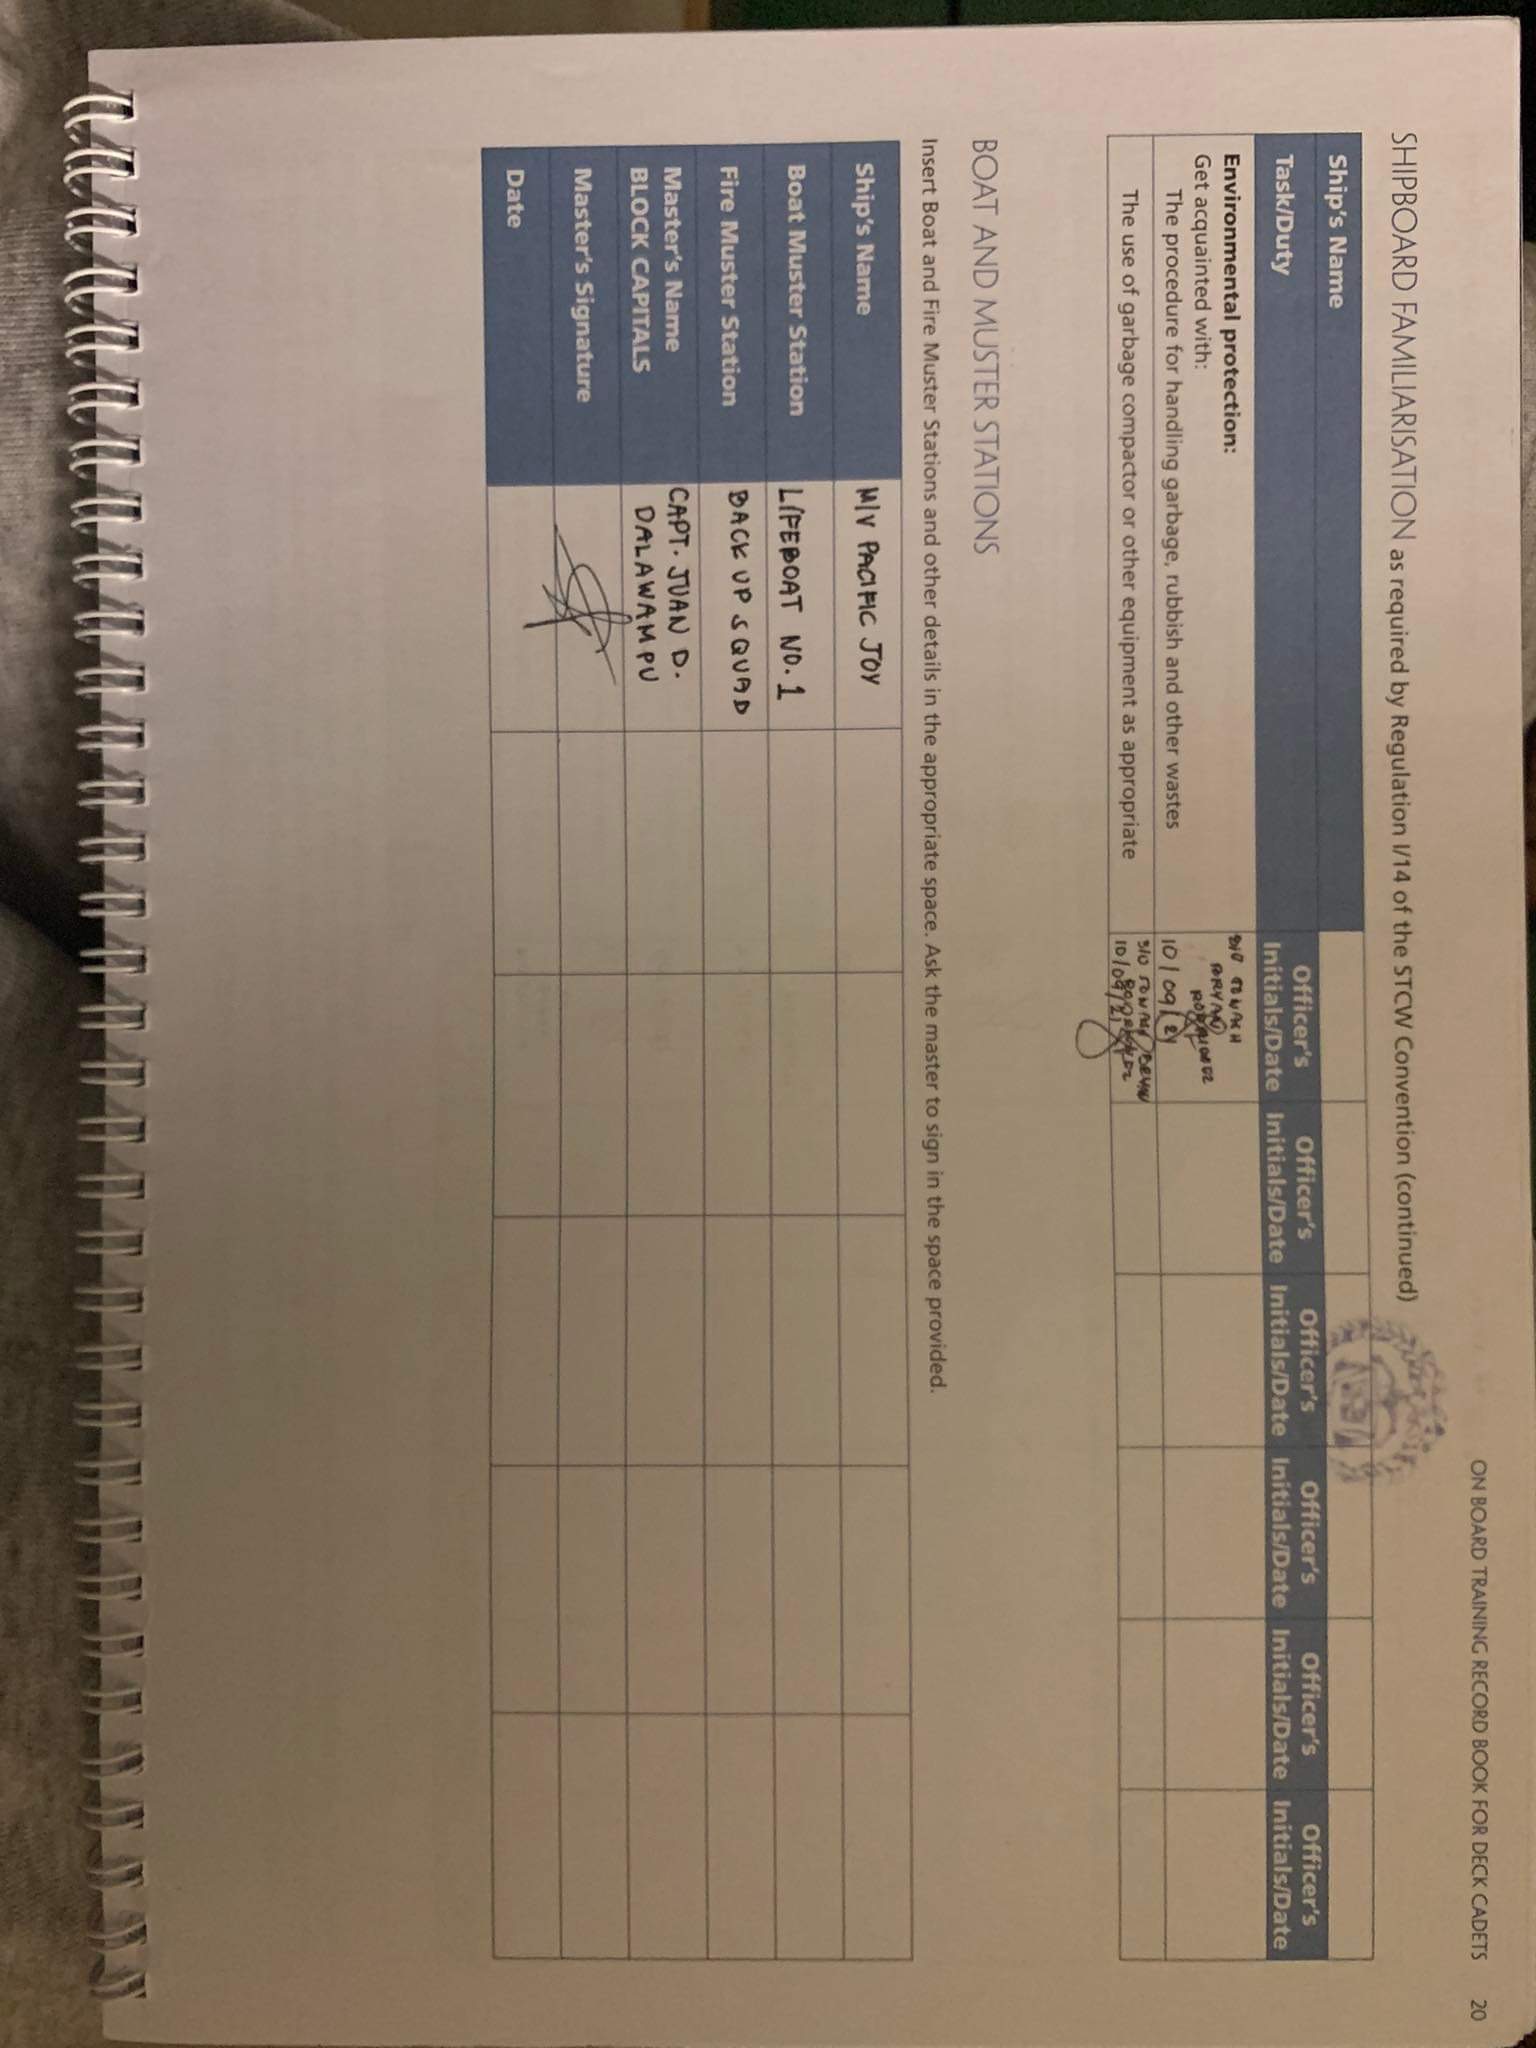 ON BOARD TRAINING RECORD BOOK FOR DECK CADETS 20
SHIPBOARD FAMILIARISATION as required by Regulation I/14 of the STCW Convention (continued)
Ship's Name
Task/Duty Officer's Initials/Date Officer's Initials/Date Officer's Initials/Date Officer's Initials/Date Officer's Initials/Date Officer's Initials/Date
Environmental protection:
Get acquainted with:
The procedure for handling garbage, rubbish and other wastes 10/09/21
The use of garbage compactor or other equipment as appropriate 10/09/21
BOAT AND MUSTER STATIONS
Insert Boat and Fire Muster Stations and other details in the appropriate space. Ask the master to sign in the space provided.
Ship's Name M/V PACIFIC JOY
Boat Muster Station LIFEBOAT NO. 1
Fire Muster Station BACK UP SQUAD
Master's Name CAPT. JUAN D.
BLOCK CAPITALS DALAWAMPU
Master's Signature
Date